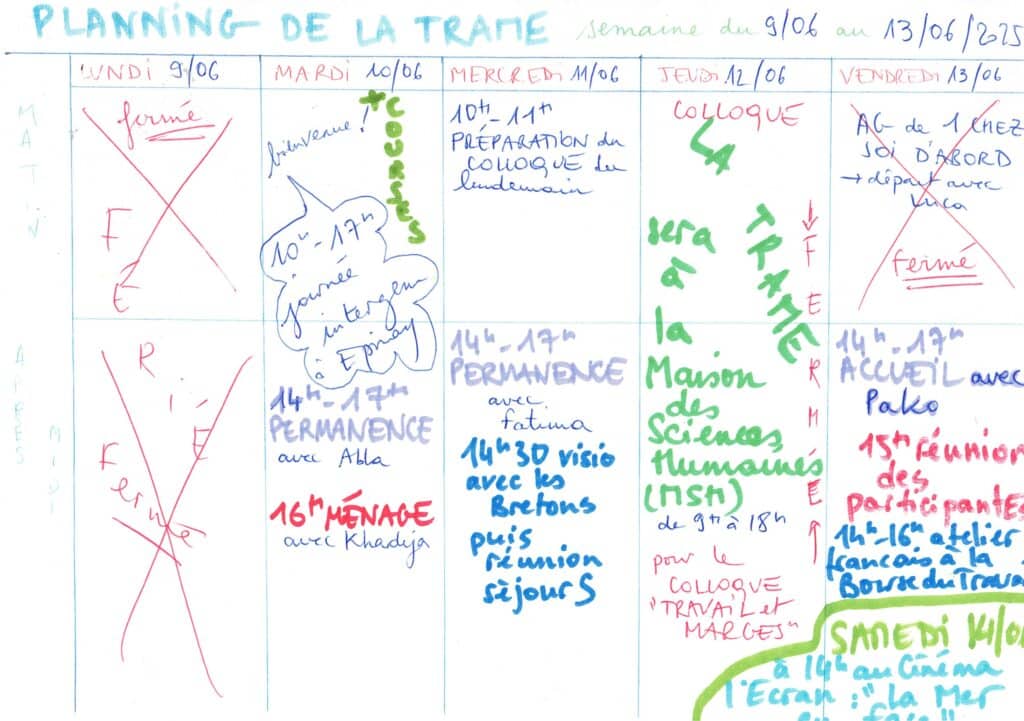 PLANNING DE LA TRAME semaine du 9/06 au 13/06/2025
LUNDI 9/06
MARDI 10/06
MERCREDI 11/06
JEUDI 12/06
VENDREDI 13/06
MATIN
APRES MIDI
fermé
FÉRIÉ
Fermé
bienvenue!
+ COURSES
10h-17h
journée
intergen
à Epinay
14h-17h
PERMANENCE
avec Abla
16h MÉNAGE
avec Khadija
10h-11h
PRÉPARATION du
COLLOQUE du
lendemain
14h-17h
PERMANENCE
avec
fatima
14h30 visio
avec les
Bretons
puis
réunion
séjourS
COLLOQUE
LA
TRAME
sera
à
la
Maison
des
Sciences
Humaines
(MSH)
de 9h à 18h
pour le
COLLOQUE
"TRAVAIL et
MARGES"
→ FERMÉE ←
AG de 1 CHEZ
SOI D'ABORD
→ départ avec
Luca
fermé
14h-17h
ACCUEIL avec
Pako
15h réunion
des
participantEs
14h-16h atelier
français à la
Bourse du Trava
SAMEDI 14/0
à 14h au Cinéma
l'Ecran : "La Mer
en face"